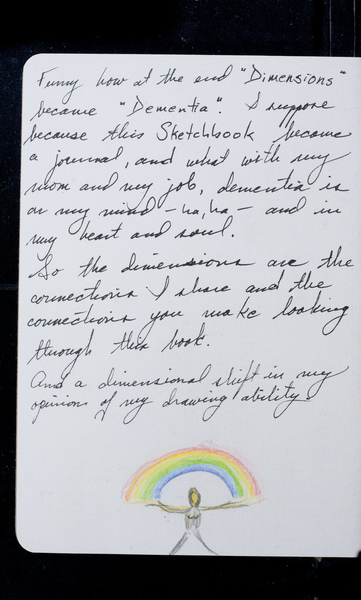 Funny how at the end "Dimensions"
became "Dementia". I suppose
because this Sketchbook became
a journal, and what with my
mom and my job, dementia is
on my mind - ha, ha - and in
my heart and soul.
So the dimensions are the
connections I share and the
connections you make looking
through this book.
And a dimensional shift in my
opinion of my drawing ability.